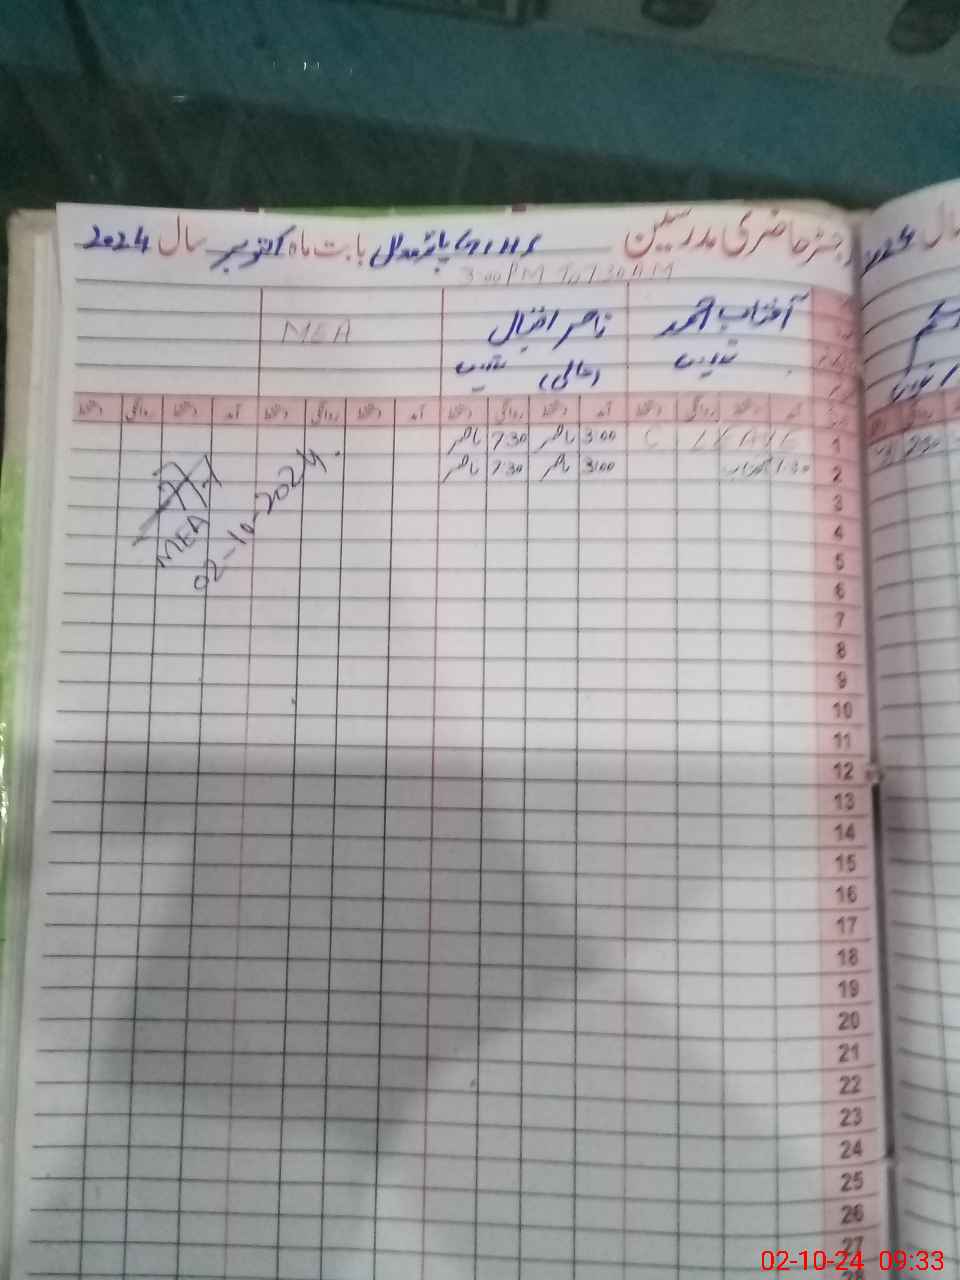 رجسٹر حاضری مدرسین GHS بابت ماہ اکتوبر سال 2024
3:00 PM To 7:30 AM
آفتاب احمد ناصر اقبال MEA
آمد دستخط روانگی دستخط آمد دستخط روانگی دستخط آمد دستخط روانگی دستخط آمد دستخط روانگی دستخط
1 C LEAVE 3:00 ناصر 7:30 ناصر
2 آفتاب 3:00 ناصر 7:30 ناصر
MEA
02-10-2024.
3
4
5
6
7
8
9
10
11
12
13
14
15
16
17
18
19
20
21
22
23
24
25
26
27
02-10-24 09:33